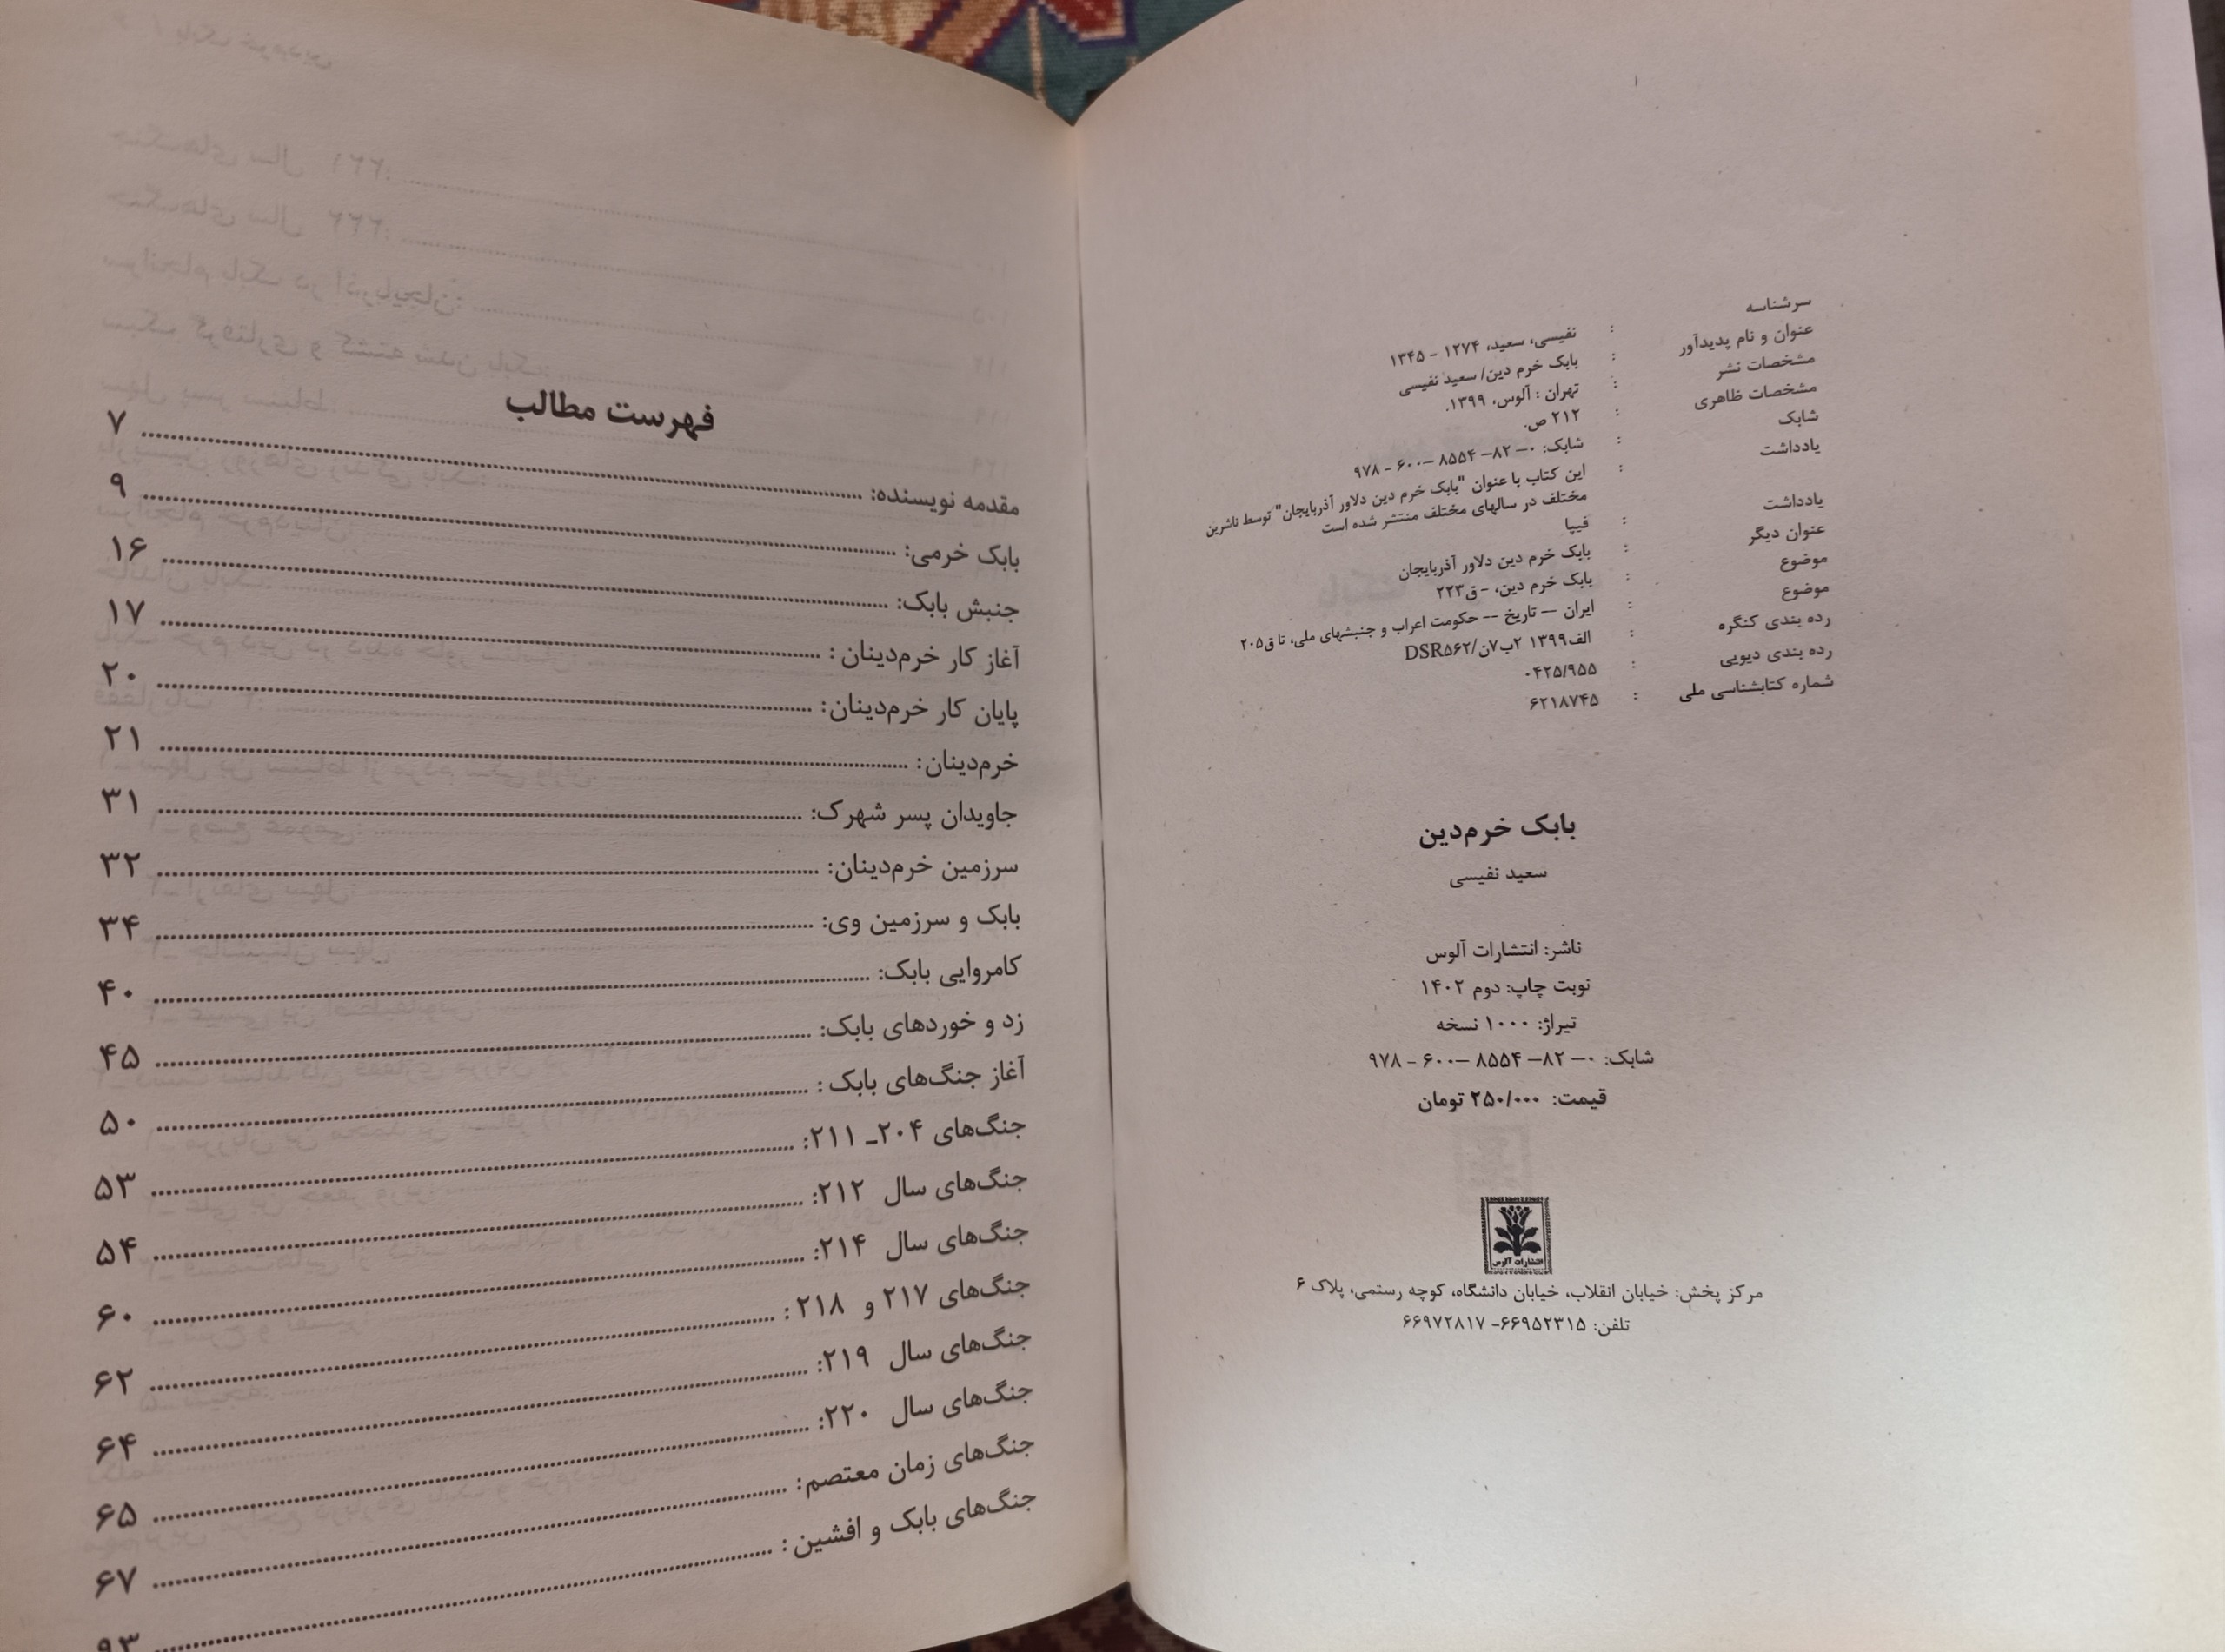 سرشناسه : نفیسی، سعید، ۱۲۷۴ - ۱۳۴۵
عنوان و نام پدیدآور : بابک خرم دین/ سعید نفیسی
مشخصات نشر : تهران : آلوس، ۱۳۹۹.
مشخصات ظاهری : ۲۱۲ ص.
شابک : شابک: ۰– ۸۲– ۸۵۵۴ –۶۰۰ - ۹۷۸
یادداشت : این کتاب با عنوان "بابک خرم دین دلاور آذربایجان" توسط ناشرین
مختلف در سالهای مختلف منتشر شده است
یادداشت : فیپا
عنوان دیگر : بابک خرم دین دلاور آذربایجان
موضوع : بابک خرم دین، -ق۲۲۳
موضوع : ایران — تاریخ -- حکومت اعراب و جنبشهای ملی، تا ق۲۰۵
رده بندی کنگره : الف۱۳۹۹ ۲ب۷ن/DSR۵۶۲
رده بندی دیویی : ۰۴۲۵/۹۵۵
شماره کتابشناسی ملی : ۶۲۱۸۷۴۵
بابک خرم‌دین
سعید نفیسی
ناشر: انتشارات آلوس
نوبت چاپ: دوم ۱۴۰۲
تیراژ: ۱۰۰۰ نسخه
شابک: ۰– ۸۲– ۸۵۵۴ –۶۰۰ - ۹۷۸
قیمت: ۲۵۰/۰۰۰ تومان
انتشارات آلوس
مرکز پخش: خیابان انقلاب، خیابان دانشگاه، کوچه رستمی، پلاک ۶
تلفن: ۶۶۹۵۲۳۱۵- ۶۶۹۷۲۸۱۷
فهرست مطالب
مقدمه نویسنده: ........ ۷
بابک خرمی: ........ ۹
جنبش بابک: ........ ۱۶
آغاز کار خرم‌دینان : ........ ۱۷
پایان کار خرم‌دینان: ........ ۲۰
خرم‌دینان: ........ ۲۱
جاویدان پسر شهرک: ........ ۳۱
سرزمین خرم‌دینان: ........ ۳۲
بابک و سرزمین وی: ........ ۳۴
کامروایی بابک: ........ ۴۰
زد و خوردهای بابک: ........ ۴۵
آغاز جنگ‌های بابک : ........ ۵۰
جنگ‌های ۲۰۴ـ ۲۱۱: ........ ۵۳
جنگ‌های سال ۲۱۲: ........ ۵۴
جنگ‌های سال ۲۱۴: ........ ۶۰
جنگ‌های ۲۱۷ و ۲۱۸ : ........ ۶۲
جنگ‌های سال ۲۱۹: ........ ۶۴
جنگ‌های سال ۲۲۰: ........ ۶۵
جنگ‌های زمان معتصم: ........ ۶۷
جنگ‌های بابک و افشین : ........ ۹۳